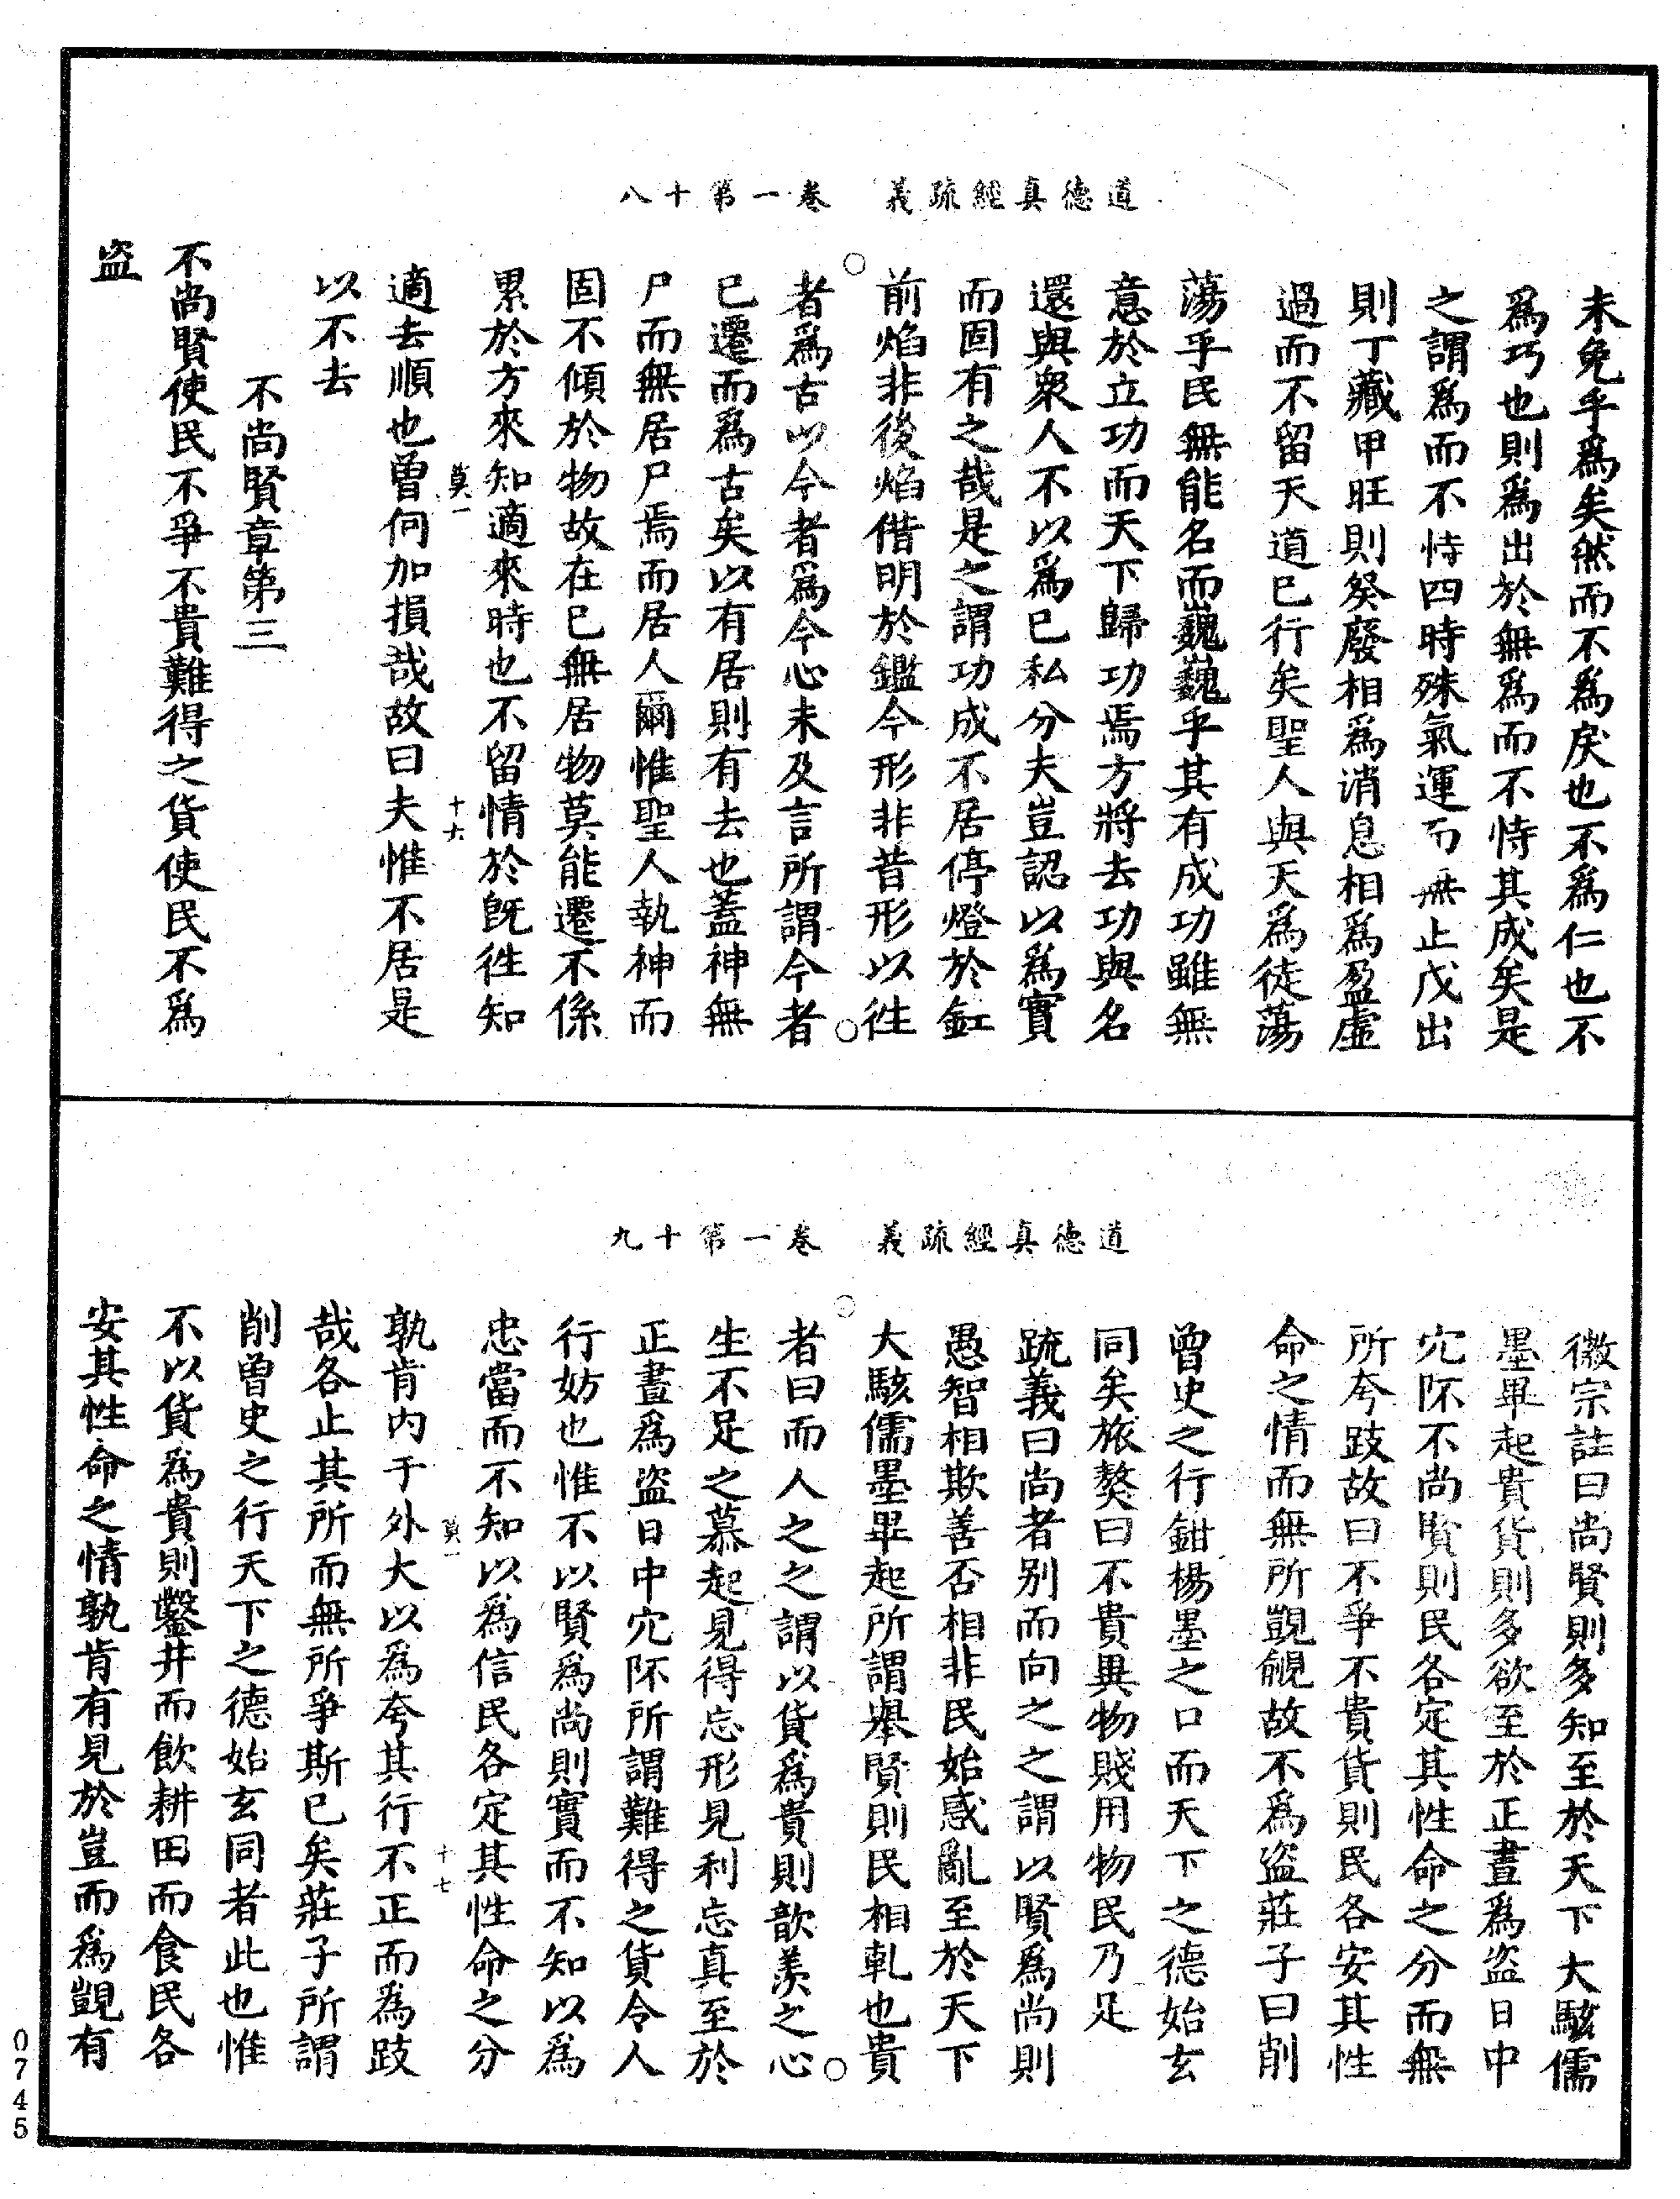 道德真經疏義　卷一第十八
未免乎爲矣然而不爲戾也不爲仁也不
爲巧也則爲出於無爲而不恃其成矣是
之謂爲而不恃四時殊氣運而無止戊出
則丁藏甲旺則癸廢相爲消息相爲盈虛
過而不留天道已行矣聖人與天爲徒蕩
蕩乎民無能名而巍巍乎其有成功雖無
意於立功而天下歸功焉方將去功與名
還與衆人不以爲已私分夫豈認以爲實
而固有之哉是之謂功成不居停燈於缸
前焰非後焰借明於鑑今形非昔形以徃
者爲古以今者爲今心未及言所謂今者
已遷而爲古矣以有居則有去也蓋神無
尸而無居尸焉而居人爾惟聖人執神而
固不傾於物故在已無居物莫能遷不係
累於方來知適來時也不留情於旣徃知
莫一　十六
適去順也曾何加損哉故曰夫惟不居是
以不去
不尚賢章第三
不尚賢使民不爭不貴難得之貨使民不爲
盜
道德真經疏義　卷一第十九
徽宗註曰尚賢則多知至於天下大駭儒
墨畢起貴貨則多欲至於正晝爲盜日中
穴阫不尚賢則民各定其性命之分而無
所夸跂故曰不爭不貴貨則民各安其性
命之情而無所覬覦故不爲盜莊子曰削
曾史之行鉗楊墨之口而天下之德始玄
同矣旅獒曰不貴異物賤用物民乃足
疏義曰尚者别而向之之謂以賢爲尚則
愚智相欺善否相非民始惑亂至於天下
大駭儒墨畢起所謂舉賢則民相軋也貴
者曰而人之之謂以貨爲貴則歆羨之心
生不足之慕起見得忘形見利忘真至於
正晝爲盜日中穴阫所謂難得之貨令人
行妨也惟不以賢爲尚則實而不知以爲
忠當而不知以爲信民各定其性命之分
莫一　十七
孰肯内于外大以爲夸其行不正而爲跂
哉各止其所而無所爭斯已矣莊子所謂
削曾史之行天下之德始玄同者此也惟
不以貨爲貴則鑿井而飲耕田而食民各
安其性命之情孰肯有見於豈而爲覬有
0745